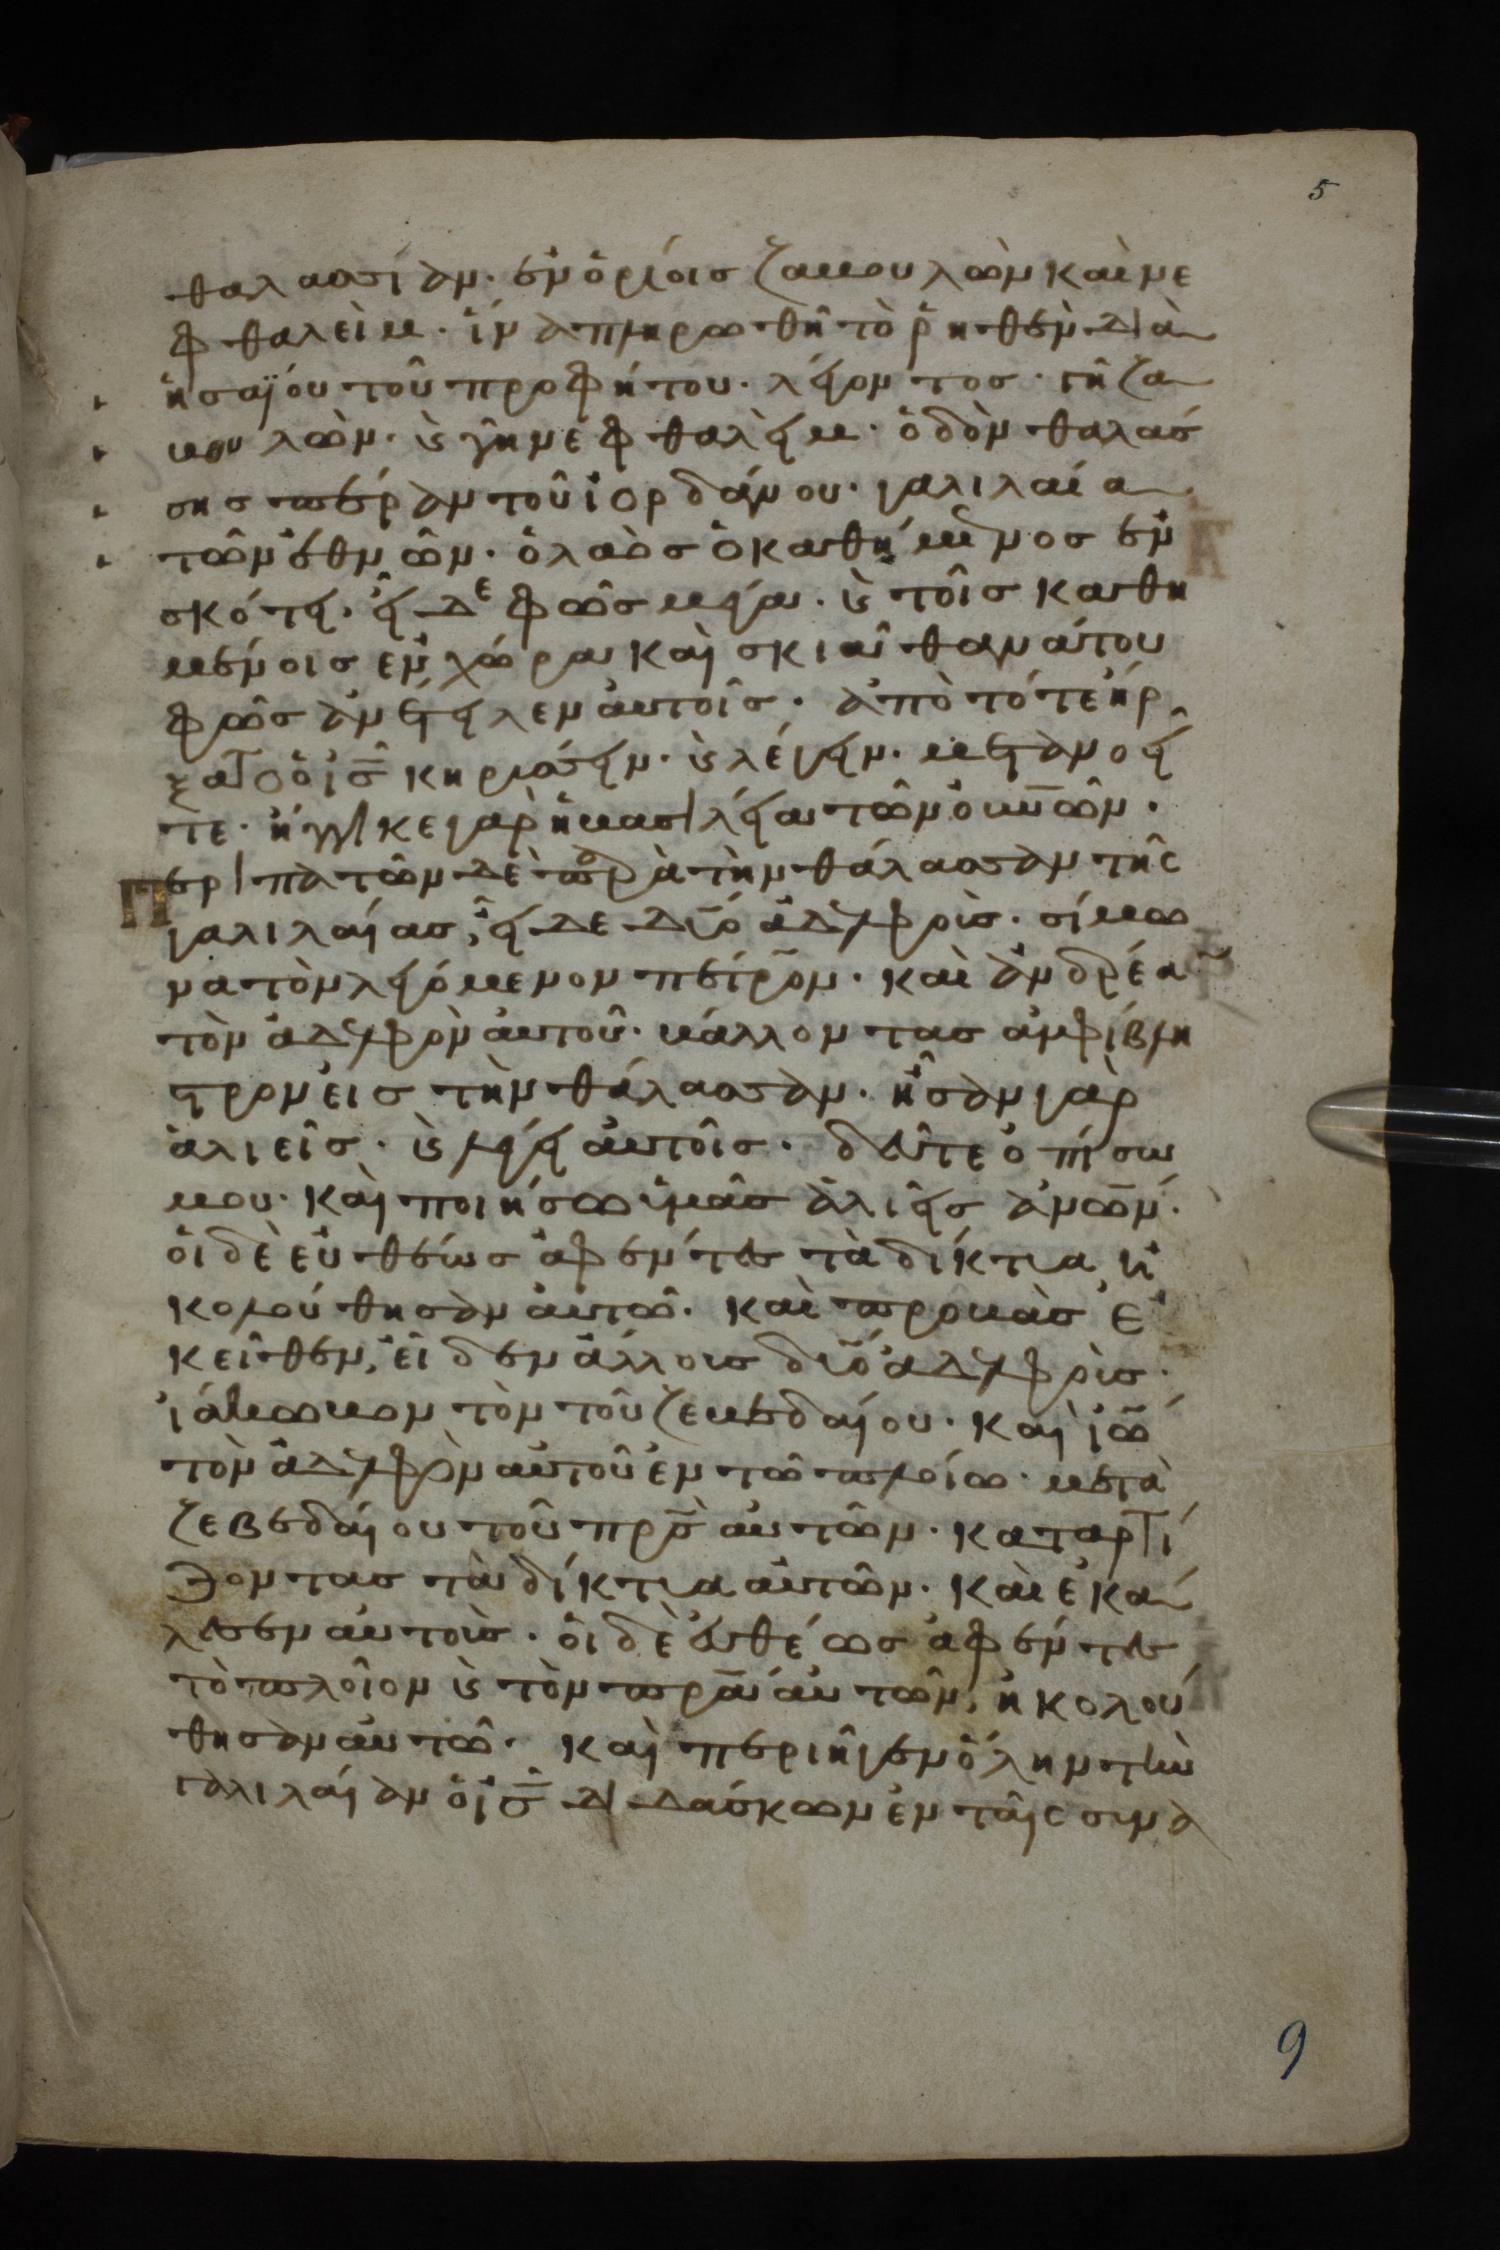 5
θαλασσίαν· ἐν ὁρίοις ζαβουλὼν καὶ νε
φθαλεὶμ· ἵνα πληρωθῆ τὸ ῥηθὲν διὰ
ἡσαΐου τοῦ προφήτου· λέγοντος· γῆ ζα
βουλὼν· ϗ γῆ νεφθαλεὶμ· ὁδὸν θαλάσ
σης πέραν τοῦ ἰορδάνου· γαλιλαία
τῶν ἐθνῶν· ὁ λαὸς ὁ καθήμενος ἐν
σκότει· εἶδε φῶς μέγα· ϗ τοῖς καθη
μένοις ἐν χώρα καὶ σκιᾶ θανάτου
φῶς ἀνέτειλεν αὐτοῖς· ἀπὸ τότε ἤρ
ξατο ὁ ις κηρύσσειν· ϗ λέγειν· μετανοεῖ
τε· ἤγγικε γὰρ ἡ βασιλεία τῶν ουνων·
Περιπατῶν δὲ παρὰ τὴν θάλασσαν τῆς
γαλιλαίας, εἶδε δύο ἀδελφούς· σίμω
να τὸν λεγόμενον πέτρον· καὶ ἀνδρέαν
τὸν ἀδελφὸν αὐτοῦ· βάλλοντας ἀμφίβλη
τρον εἰς τὴν θάλασσαν· ἦσαν γὰρ
ἁλιεῖς· ϗ λέγει αὐτοῖς· δεῦτε ὀπίσω
μου· καὶ ποιήσω ὑμᾶς ἁλιεῖς ανων·
οἱ δὲ εὐθέως ἀφέντες τὰ δίκτυα, ἠ
κολούθησαν αὐτῶ· καὶ προβὰς ἐ
κεῖθεν, εἶδεν ἄλλους δύο ἀδελφούς·
ἰάκωβον τὸν τοῦ ζεβεδαίου· καὶ ἰω
τὸν ἀδελφὸν αὐτοῦ ἐν τῶ πλοίω· μετὰ
ζεβεδαίου τοῦ πρς αὐτῶν· καταρτί
ζοντας τὰ δίκτυα αὐτῶν· καὶ ἐκά
λεσεν αὐτούς· οἱ δὲ εὐθέως ἀφέντες
τὸ πλοῖον ϗ τὸν πρα αὐτῶν, ἠκολού
θησαν αὐτῶ· καὶ περιῆγεν ὅλην τὴν
γαλιλαίαν ὁ ις διδάσκων ἐν ταῖς συνα
9